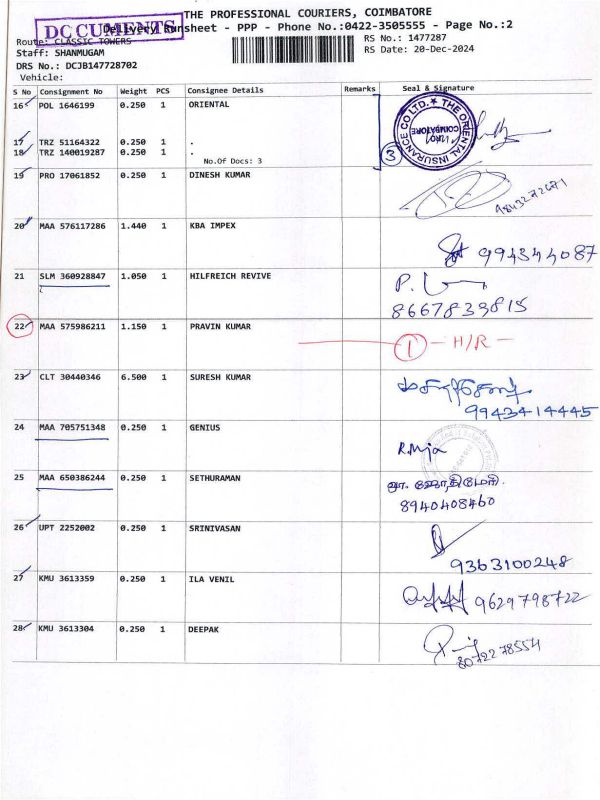 THE PROFESSIONAL COURIERS, COIMBATORE
DOCUMENTS
Delivery Runsheet - PPP - Phone No.:0422-3505555 - Page No.:2
Route: CLASSIC TOWERS
RS No.: 1477287
Staff: SHANMUGAM
RS Date: 20-Dec-2024
DRS No.: DCJB147728702
Vehicle:
S No Consignment No Weight PCS Consignee Details Remarks Seal & Signature
16 POL 1646199 0.250 1 ORIENTAL
THE ORIENTAL INSURANCE CO LTD.
COIMBATORE
17 TRZ 51164322 0.250 1 .
18 TRZ 140019287 0.250 1 .
3
No.Of Docs: 3
19 PRO 17061852 0.250 1 DINESH KUMAR
9843272671
20 MAA 576117286 1.440 1 KBA IMPEX
994344087
21 SLM 360928847 1.050 1 HILFREICH REVIVE
8667833815
22 MAA 575986211 1.150 1 PRAVIN KUMAR
1 - H/R -
23 CLT 30440346 6.500 1 SURESH KUMAR
9943414445
24 MAA 705751348 0.250 1 GENIUS
25 MAA 650386244 0.250 1 SETHURAMAN
8940408460
26 UPT 2252002 0.250 1 SRINIVASAN
9363100248
27 KMU 3613359 0.250 1 ILA VENIL
9629798722
28 KMU 3613304 0.250 1 DEEPAK
8072278554